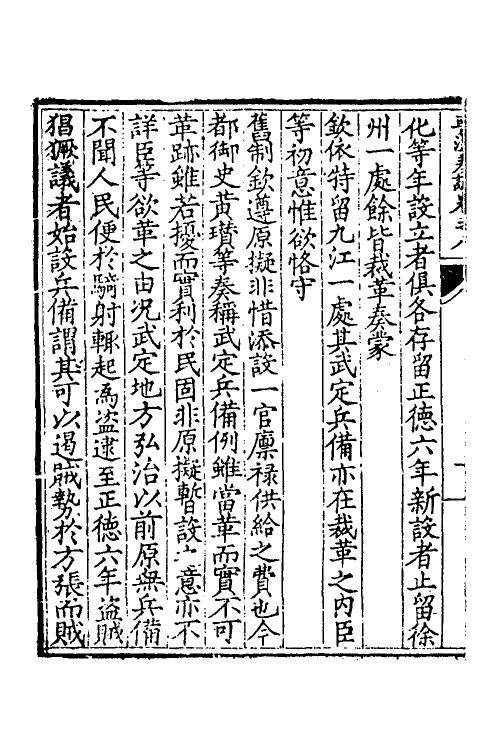 化等年設立者俱各存留正德六年新設者止留徐
州一處餘皆裁革奏蒙
欽依特留九江一處其武定兵備亦在裁革之內臣
等初意惟欲恪守
舊制欽遵原擬非惜添設一官廪祿供給之費也今
都御史黃瓚等奏稱武定兵備例雖當革而實不可
革跡雖若擾而實利於民固非原擬暫設之意亦不
詳臣等欲革之由況武定地方弘治以前原無兵備
不聞人民便於騎射輒起為盗逮至正德六年盜賊
猖獗議者始設兵備謂其可以遏賊勢於方張而賊